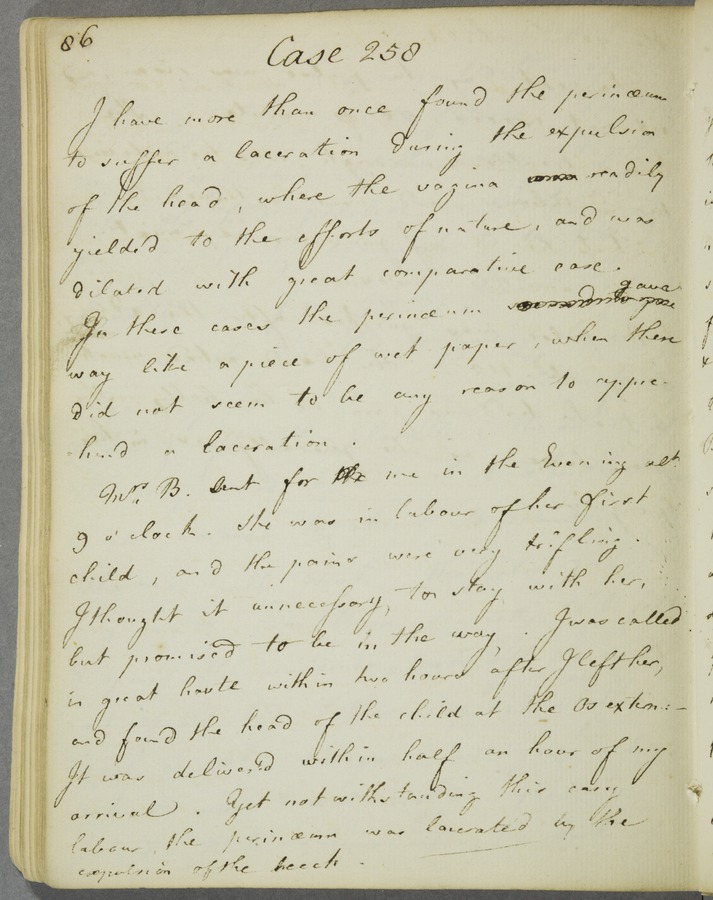 86
Case 258
I have more than once found the perinæum
to suffer a laceration during the expulsion
of the head, where the vagina readily
yielded to the efforts of nature, and was
dilated with great comparative ease.
In these cases the perinæum gave
way like a piece of wet paper, when there
did not seem to be any reason to appre-
hend a laceration.
Mrs. B. sent for me in the Evening at
9 o'clock. She was in labour of her first
child, and the pains were very trifling.
I thought it unnecessary, to stay with her,
but promised to be in the way. I was called
in great haste within two hours after I left her,
and found the head of the child at the Os extern:-
It was delivered within half an hour of my
arrival. Yet notwithstanding this easy
labour, the perinæum was lacerated by the
expulsion of the